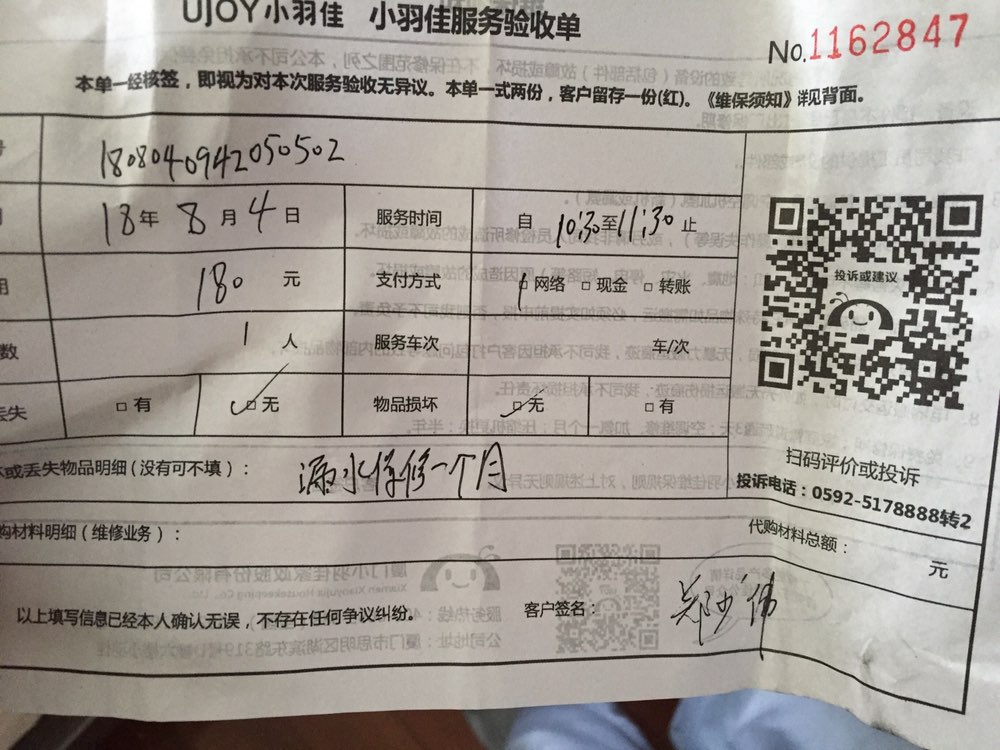 UJOY小羽佳 小羽佳服务验收单
No.1162847
本单一经核签，即视为对本次服务验收无异议。本单一式两份，客户留存一份(红)。《维保须知》详见背面。
1808040942050502
18年 8月 4日 服务时间 自 10:30至11:30止
180 元 支付方式 □网络 □现金 □转账
投诉或建议
数 1人 服务车次 车/次
丢失 □有 □无 物品损坏 □无 □有
或丢失物品明细（没有可不填）： 漏水保修一个月
扫码评价或投诉
投诉电话：0592-5178888转2
购材料明细（维修业务）：
代购材料总额： 元
以上填写信息已经本人确认无误，不存在任何争议纠纷。 客户签名：